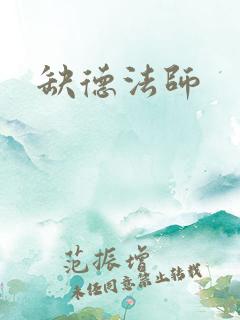 缺德法师
范振增
未经同意禁止转载